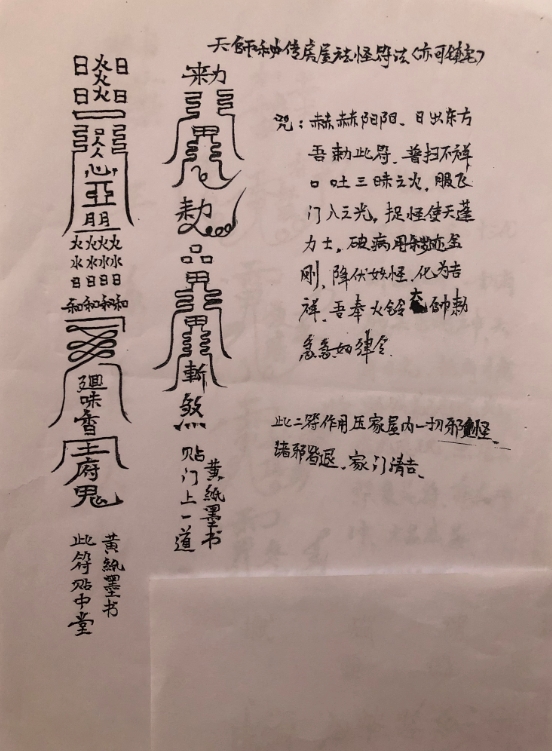 天师秘传房屋祛怪符法(亦可镇宅)
咒：赫赫阳阳、日出东方
吾勅此符、普扫不祥
口吐三昧之火，服飞
门入之光，捉怪使天蓬
力士，破病用秽迹金
刚，降伏妖怪，化为吉
祥、吾奉火铃大帅勅
急急如律令
此二符作用压家屋内一切邪魔怪
诸邪皆退、家门清吉、
勅
甲
勅
品
甲
斬
煞
黄紙墨书
贴门上一道
日炎日
日火日
心
亞
朋
火火火火
水水水水
日日日日
和和和和
廻
味
香
王
府
鬼
黄紙墨书
此符贴中堂